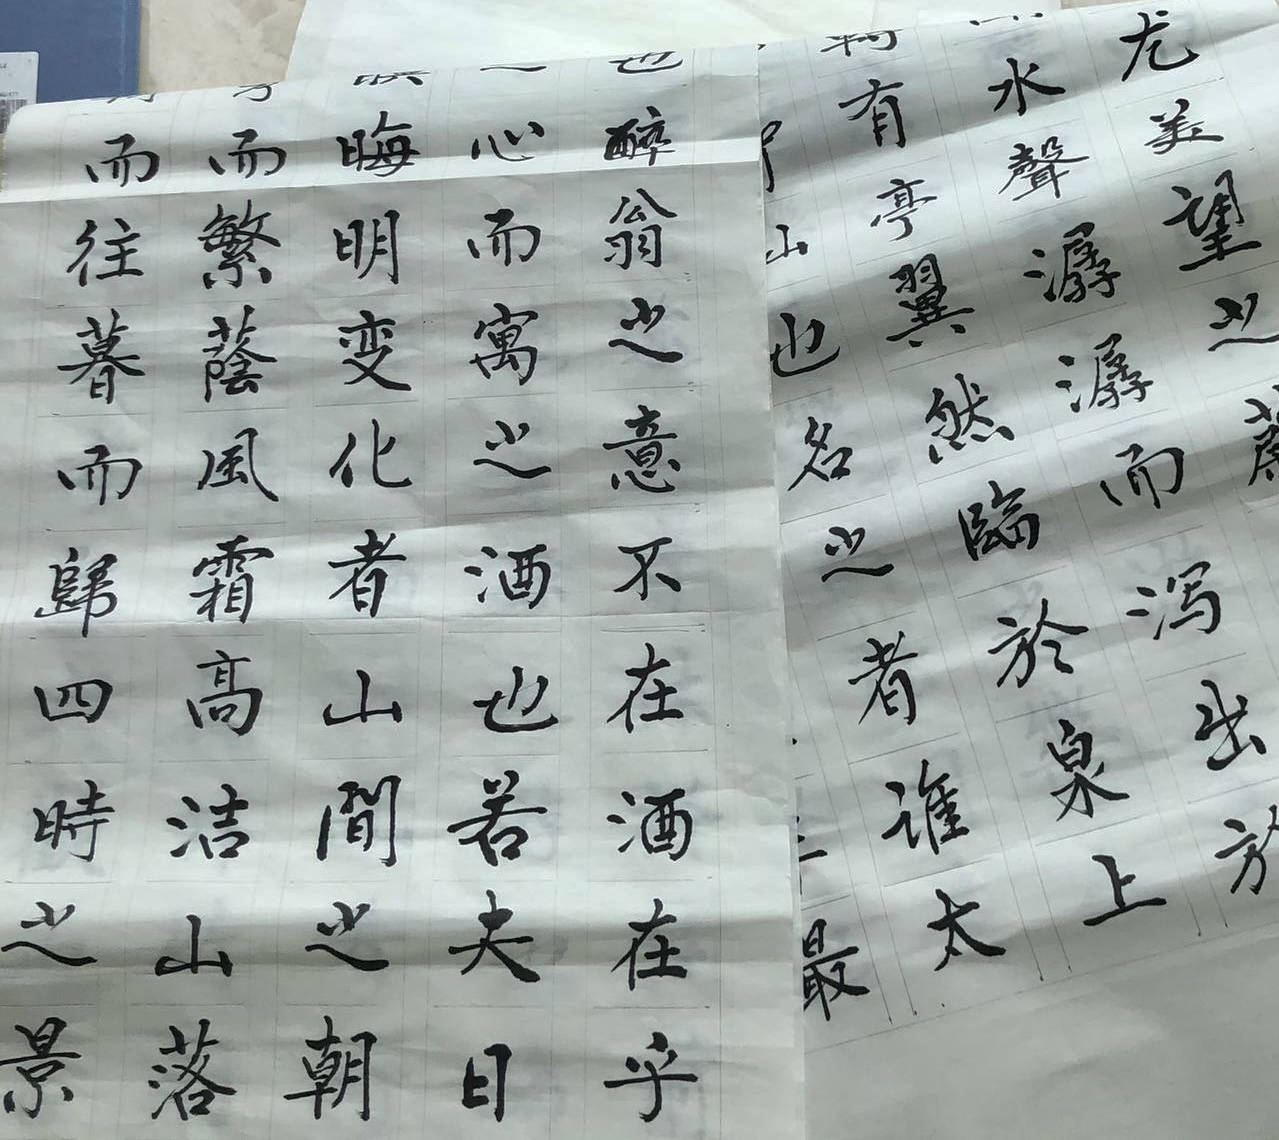 尤美望之蔚
水聲潺潺而泻出於
有亭翼然臨於泉上
山也名之者谁太
最
醉翁之意不在酒在乎
心而寓之酒也若夫日
晦明变化者山間之朝
而繁蔭風霜高洁山落
而往暮而歸四時之景